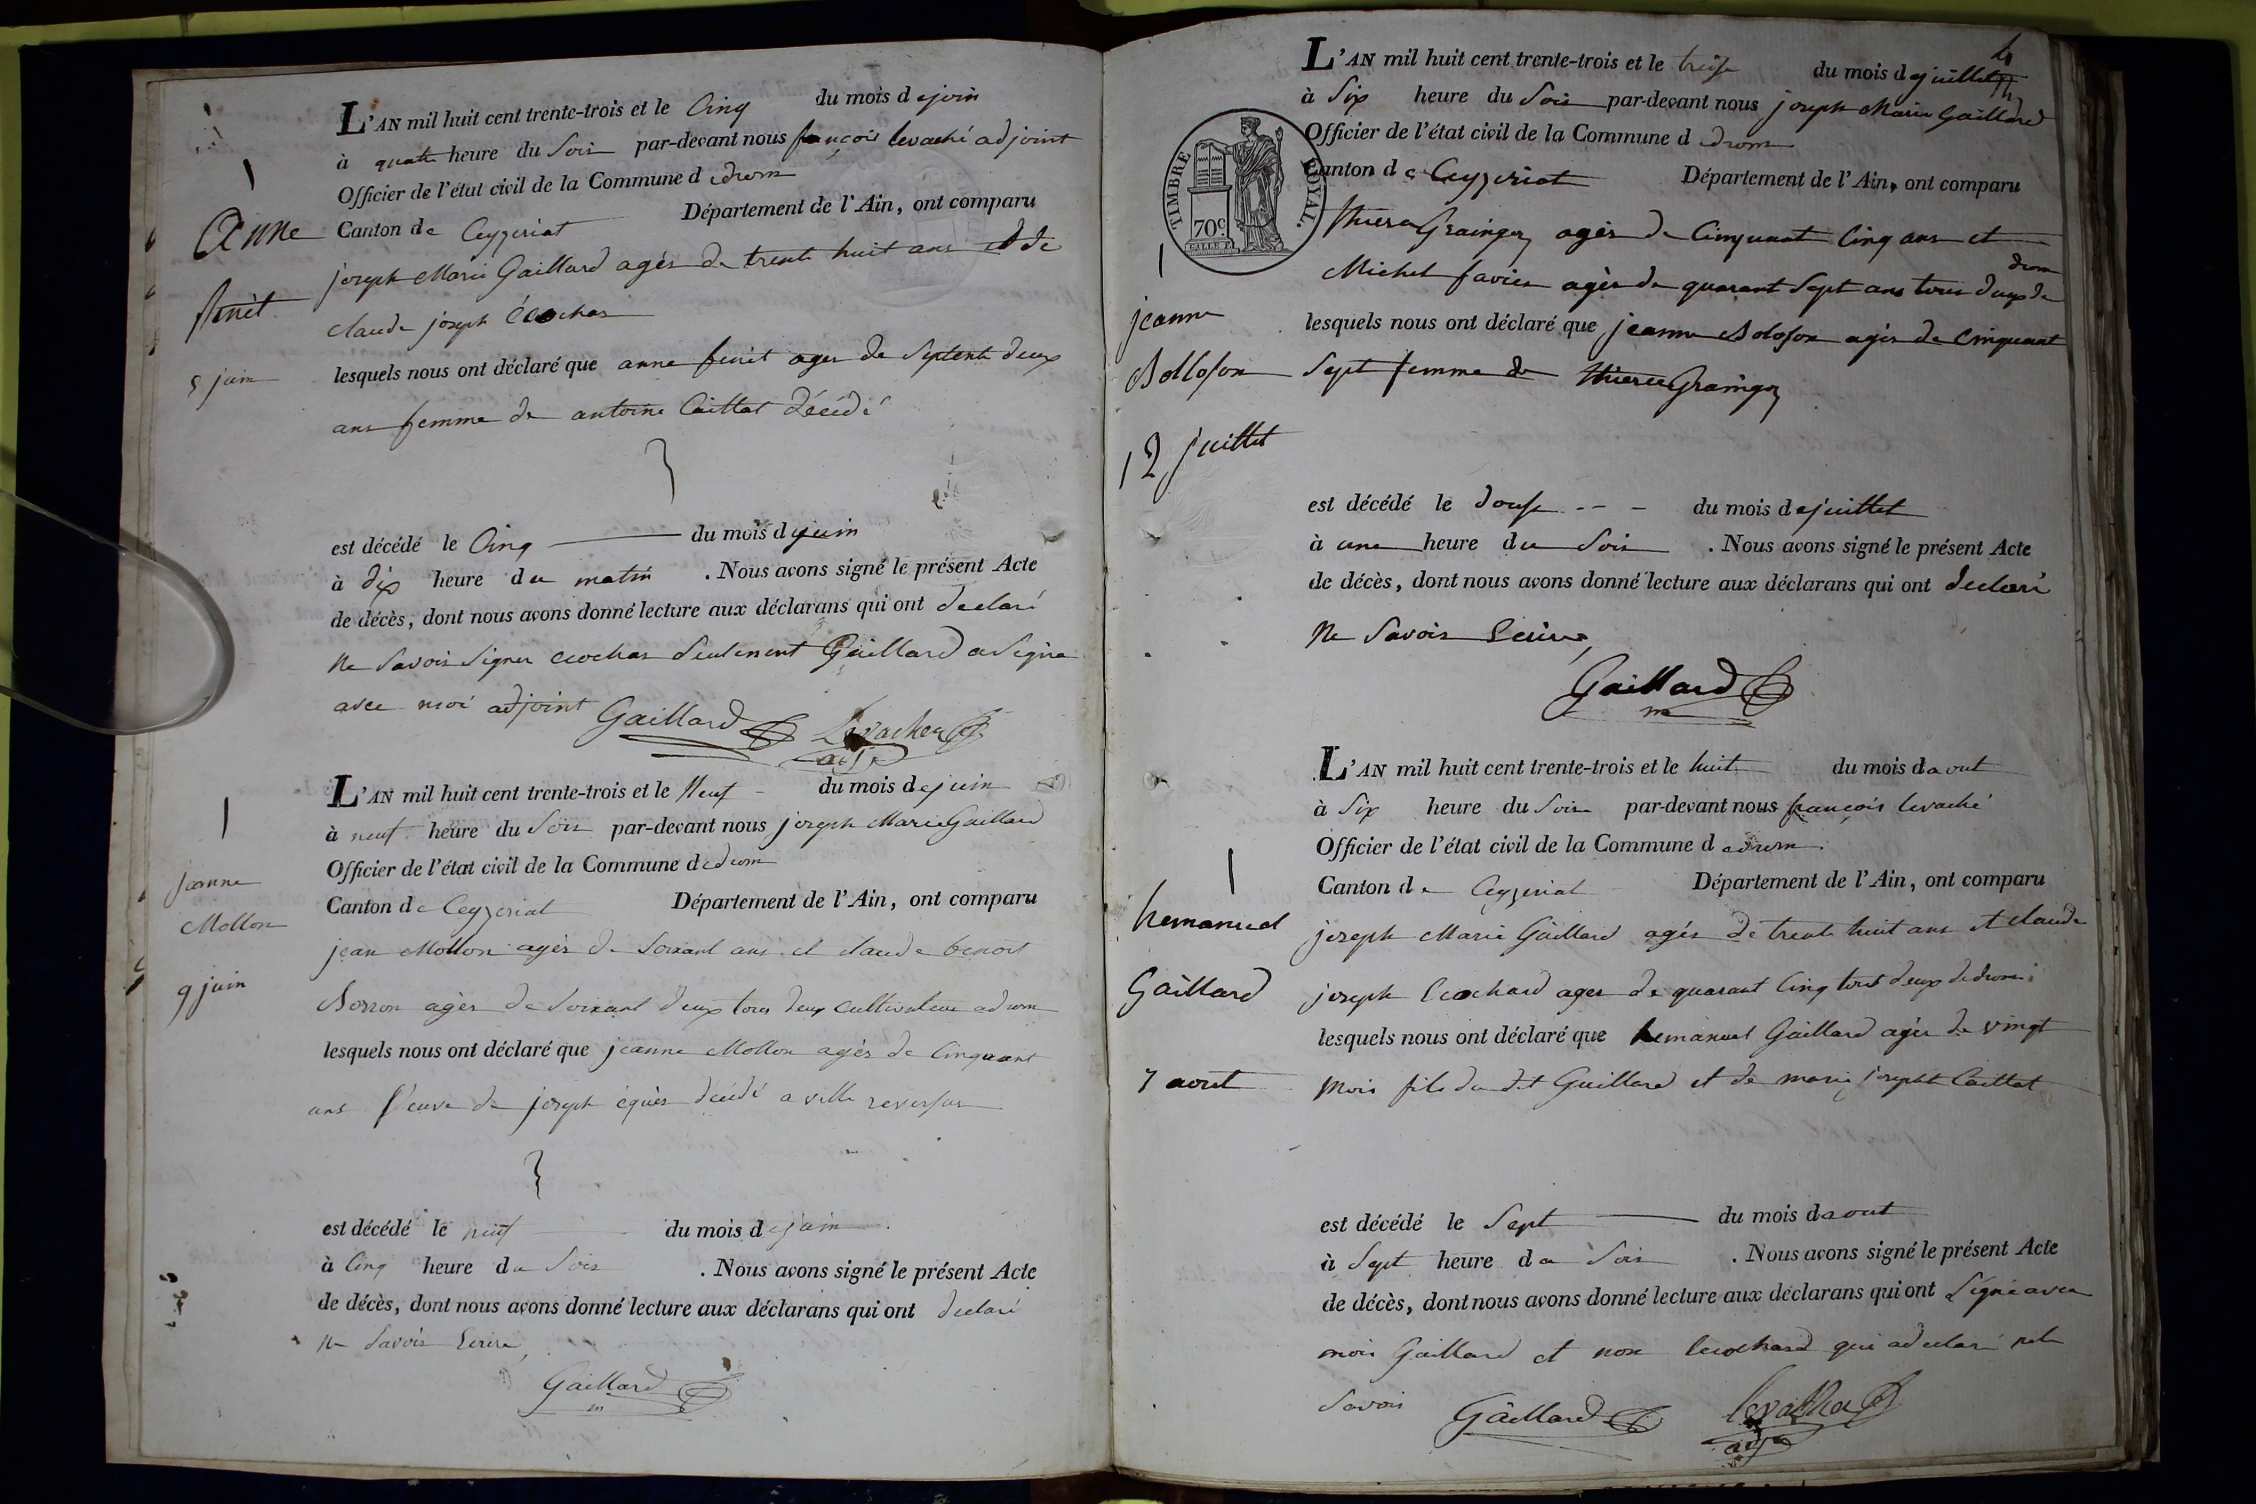 L'AN mil huit cent trente-trois et le Cinq du mois de juin
à quatre heure du Soir par-devant nous françois levaché adjoint
Officier de l'état civil de la Commune de drom
Canton de Ceyzeriat Département de l'Ain, ont comparu
joseph Marie Gaillard agés de trente huit ans et de
claude joseph
lesquels nous ont déclaré que anne ferret ager de Septente deux
ans femme de antoine Caillat décédé
Anne
ferret
5 juin
est décédé le Cinq du mois de juin
à dix heure du matin . Nous avons signé le présent Acte
de décès, dont nous avons donné lecture aux déclarans qui ont declaré
ne Savoir Signer ecochar Seulement Gaillard a Signe
avec moi adjoint Gaillard Levacher
adj
L'AN mil huit cent trente-trois et le Neuf du mois de juin
à neuf heure du Soir par-devant nous joseph Marie Gaillard
Officier de l'état civil de la Commune de drom
Canton de Ceyzeriat Département de l'Ain, ont comparu
jean Mollon agés de Soixant ans et claude benoit
agés de Soixant deux tous deux Cultivateur a drom
lesquels nous ont déclaré que jeanne Mollon agés de Cinquant
ans veuve de joseph décédé a ville reversur
jeanne
Mollon
9 juin
est décédé le neuf du mois de juin
à Cinq heure du Soir . Nous avons signé le présent Acte
de décès, dont nous avons donné lecture aux déclarans qui ont declaré
ne Savoir Ecrire
Gaillard
m
4
L'AN mil huit cent trente-trois et le treise du mois de juillet
à Six heure du Soir par-devant nous joseph Marie Gaillard
Officier de l'état civil de la Commune de drom
Canton de Ceyzeriat Département de l'Ain, ont comparu
TIMBRE ROYAL.
70c
Grainger agés de Cinquant Cinq ans et
Michel favier agés de quarant Sept ans tous deux de drom
lesquels nous ont déclaré que jeanne Boloson agés de Cinquant
Sept femme de Grainger
jeanne
Bolloson
12 juillet
est décédé le douse du mois de juillet
à une heure du Soir . Nous avons signé le présent Acte
de décès, dont nous avons donné lecture aux déclarans qui ont declaré
Ne Savoir Ecrire
Gaillard
m
L'AN mil huit cent trente-trois et le huit du mois daout
à Six heure du Soir par-devant nous françois levaché
Officier de l'état civil de la Commune de drom
Canton de Ceyzeriat Département de l'Ain, ont comparu
joseph Marie Gaillard agés de trente huit ans et claude
joseph Ecochard ager de quarant Cinq tous deux de drom
lesquels nous ont déclaré que hemanuel Gaillard agés de vingt
mois fils du dit Gaillard et de marie josepht Caillat
hemanuel
Gaillard
7 aout
est décédé le Sept du mois daout
à Sept heure du Soir . Nous avons signé le présent Acte
de décès, dont nous avons donné lecture aux déclarans qui ont Signé avec
moi Gaillard et non Ecochard qui a declaré ne le
Savoir Gaillard levacher
adj